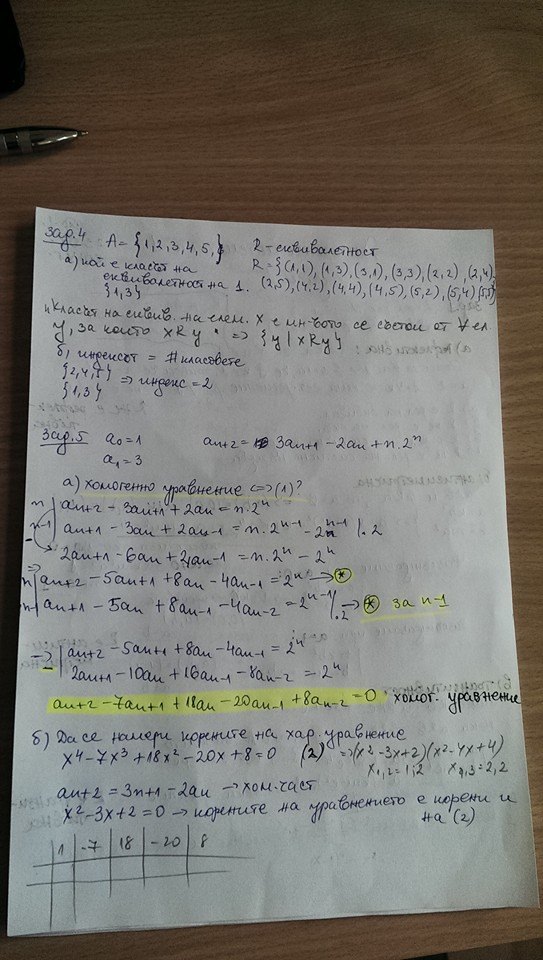 Зад.4 A = {1,2,3,4,5,} R - еквивалетност
а) кой е класът на R = {(1,1), (1,3), (3,1), (3,3), (2,2), (2,4),
еквивалетност на 1. (2,5), (4,2), (4,4), (4,5), (5,2), (5,4) (5,5)
{1,3}
Класът на еквив. на елем. x е мн-вото се състои от ∀ ел.
y, за които xRy ⇒ {y | xRy}
б) индексът = # класовете
{2,4,5}
{1,3} ⇒ индекс = 2
Зад.5 a0 = 1 an+2 = 3an+1 - 2an + n.2^n
a1 = 3
а) хомогенно уравнение ⇔ (1)?
n | an+2 - 3an+1 + 2an = n.2^n
n-1 | an+1 - 3an + 2an-1 = n.2^n-1 - 2^n-1 /.2
2an+1 - 6an + 4an-1 = n.2^n - 2^n
⇒
n | an+2 - 5an+1 + 8an - 4an-1 = 2^n → *
n-1 | an+1 - 5an + 8an-1 - 4an-2 = 2^n-1 /.2 → * за n-1
→ | an+2 - 5an+1 + 8an - 4an-1 = 2^n
2an+1 - 10an + 16an-1 - 8an-2 = 2^n
an+2 - 7an+1 + 18an - 20an-1 + 8an-2 = 0 хомог. уравнение
б) Да се намери корените на хар. уравнение
x^4 - 7x^3 + 18x^2 - 20x + 8 = 0 (2) ⇒ (x^2 - 3x + 2)(x^2 - 4x + 4)
x1,2 = 1,2 x2,3 = 2,2
an+2 = 3n+1 - 2an → хом. част
x^2 - 3x + 2 = 0 → корените на уравнението е корени и
на (2)
1 | -7 | 18 | -20 | 8